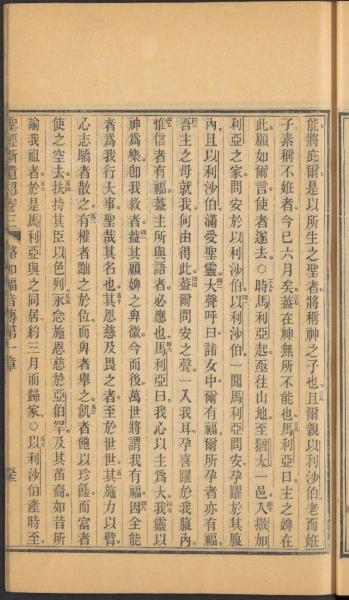 能將庇爾是以所生之聖者將稱神之子也且爾親以利沙伯老而姙
子素稱不姙者今已六月矣蓋在神無所不能也馬利亞曰主之婢在
此願如爾言使者遂去○時馬利亞起亟往山地至猶太一邑入撒加
利亞之家問安於以利沙伯以利沙伯一聞馬利亞問安孕躍於其腹
內且以利沙伯滿受聖靈大聲呼曰諸女中爾有福爾所孕者亦有福
吾主之母就我何由得此蓋爾問安之聲一入我耳孕喜躍於我腹內
惟信者有福蓋主所與語者必應也馬利亞曰我心以主為大我靈以
神為樂卽我救者蓋其顧婢之卑微今而後萬世將謂我有福因全能
者為我行大事聖哉其名也其恩慈及畏之者至於世世其施力以臂
心志驕者散之有權者黜之於位而卑者舉之飢者飽以珍饈而富者
使之空去扶持其臣以色列永念施恩慈於亞伯罕及其苗裔如昔所
諭我祖者於是馬利亞與之同居約三月而歸家○以利沙伯產時至
聖經新遺詔卷三 路加福音傳第一章